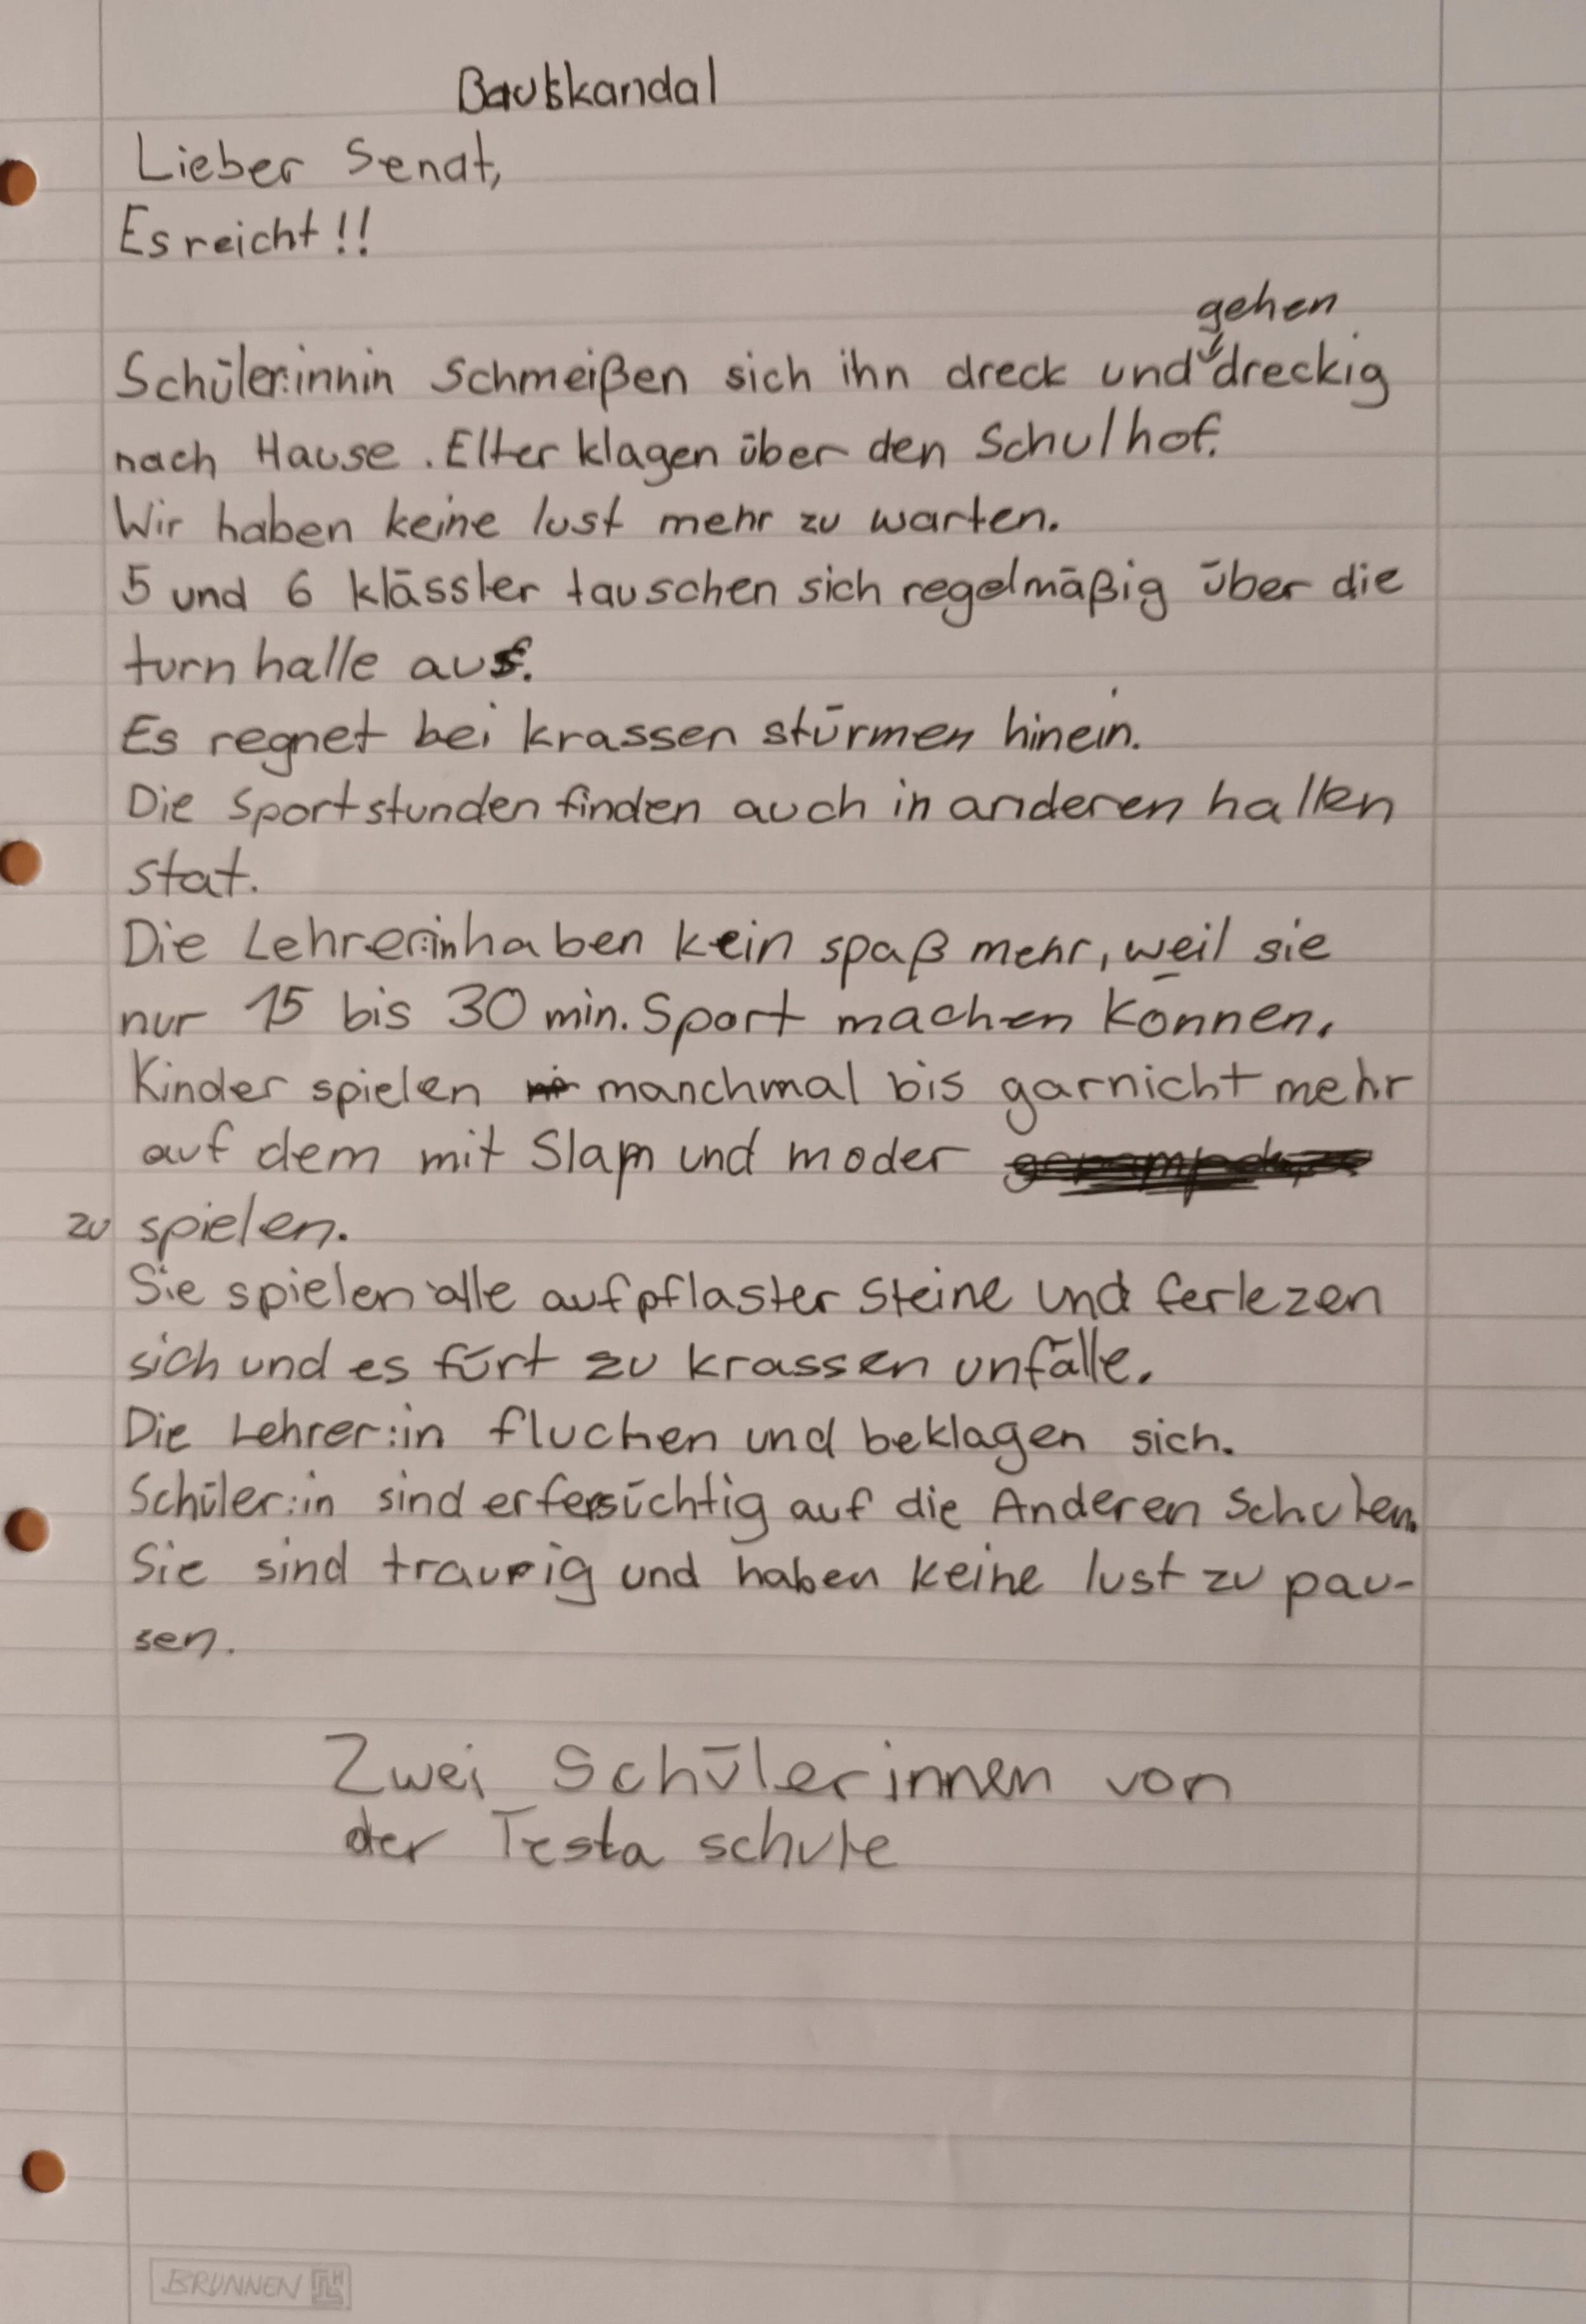 Bauskandal
Lieber Senat,
Es reicht!!
gehen
Schüler:innin Schmeißen sich ihn dreck und dreckig
nach Hause. Elter klagen über den Schulhof.
Wir haben keine lust mehr zu warten.
5 und 6 klässler tauschen sich regelmäßig über die
turnhalle aus.
Es regnet bei krassen stürmen hinein.
Die Sportstunden finden auch in anderen hallen
stat.
Die Lehrer:in haben kein spaß mehr, weil sie
nur 15 bis 30 min. Sport machen können.
Kinder spielen manchmal bis garnicht mehr
auf dem mit Slam und moder
zu spielen.
Sie spielen alle auf pflaster Steine und ferlezen
sich und es fürt zu krassen unfälle.
Die Lehrer:in fluchen und beklagen sich.
Schüler:in sind erfersüchtig auf die Anderen Schulen.
Sie sind traurig und haben keine lust zu pau-
sen.
Zwei Schülerinnen von
der Testa schule
BRUNNEN